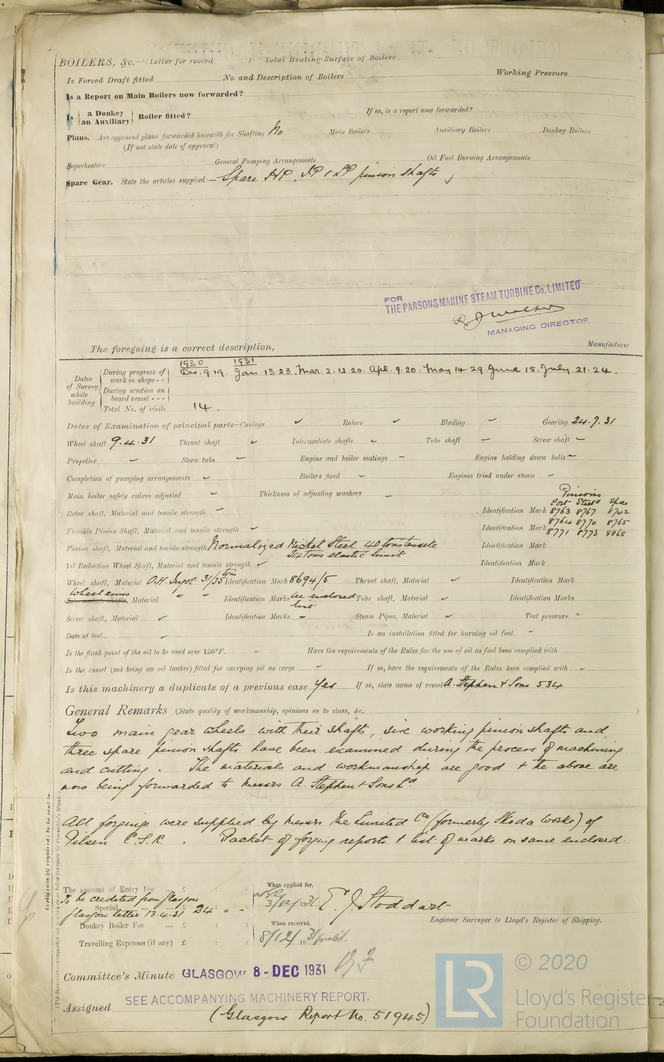 BOILERS, &c.—(Letter for record ) Total Heating Surface of Boilers
Is Forced Draft fitted No. and Description of Boilers Working Pressure
Is a Report on Main Boilers now forwarded?
Is { a Donkey / an Auxiliary } Boiler fitted? If so, is a report now forwarded?
Plans. Are approved plans forwarded herewith for Shafting No Main Boilers Auxiliary Boilers Donkey Boilers
(If not state date of approval)
Superheaters General Pumping Arrangements Oil Fuel Burning Arrangements
Spare Gear. State the articles supplied:— Spare HP, IP & LP pinion shafts
FOR
THE PARSONS MARINE STEAM TURBINE CO. LIMITED
MANAGING DIRECTOR
The foregoing is a correct description, Manufacturer
Dates of Survey while building
During progress of work in shops - -
1930 1931
Dec. 9.19 Jan 13.23 Mar. 2.12.20 Apl. 9.20 May 14.29 June 18. July 21.24.
During erection on board vessel - - -
Total No. of visits 14.
Dates of Examination of principal parts—Casings ✓ Rotors ✓ Blading ✓ Gearing 24.7.31
Wheel shaft 9.4.31 Thrust shaft ✓ Intermediate shafts ✓ Tube shaft ✓ Screw shaft ✓
Propeller ✓ Stern tube ✓ Engine and boiler seatings ✓ Engines holding down bolts ✓
Completion of pumping arrangements ✓ Boilers fixed ✓ Engines tried under steam ✓
Main boiler safety valves adjusted ✓ Thickness of adjusting washers ✓
Pinions
Port Starbd Spare
Rotor shaft, Material and tensile strength ✓ Identification Mark 8763 8767 8742
8764 8770 8765
Flexible Pinion Shaft, Material and tensile strength ✓ Identification Mark 8771 8773 8868
Pinion shaft, Material and tensile strength Normalized Nickel Steel 40 tons tensile Identification Mark
24 tons elastic limit
1st Reduction Wheel Shaft, Material and tensile strength ✓ Identification Mark
Wheel shaft, Material O.H. Ingot 31/35 ton Identification Mark 8694/5 Thrust shaft, Material ✓ Identification Mark
Wheel rims
Intermediate shafts, Material " " Identification Marks See enclosed list Tube shaft, Material ✓ Identification Marks
Screw shaft, Material ✓ Identification Marks ✓ Steam Pipes, Material ✓ Test pressure ✓
Date of test ✓ Is an installation fitted for burning oil fuel ✓
Is the flash point of the oil to be used over 150°F. ✓ Have the requirements of the Rules for the use of oil as fuel been complied with
Is the vessel (not being an oil tanker) fitted for carrying oil as cargo ✓ If so, have the requirements of the Rules been complied with ✓
Is this machinery a duplicate of a previous case Yes If so, state name of vessel A. Stephen & Sons 534
General Remarks (State quality of workmanship, opinions as to class, &c.
Two main gear wheels with their shafts, six working pinion shafts and
three spare pinion shafts have been examined during the process of machining
and cutting. The materials and workmanship are good & the above are
now being forwarded to Messrs A. Stephen & Sons Ld
All forgings were supplied by Messrs The Limited Co (formerly Skoda Works) of
Pilsen C.S.R. Packet of forging reports & list of marks on same enclosed.
The amount of Entry Fee ... £ : : When applied for,
To be credited from Glasgow
Special ... £
Glasgow letter 13.4.31 24 - -
Donkey Boiler Fee ... £ : : When received,
Travelling Expenses (if any) £ : : 8/12/1931
E. J. Stoddart
Engineer Surveyor to Lloyd's Register of Shipping.
Committee's Minute GLASGOW 8 - DEC 1931
SEE ACCOMPANYING MACHINERY REPORT.
Assigned (Glasgow Report No. 51945)
LR
© 2020
Lloyd's Register
Foundation